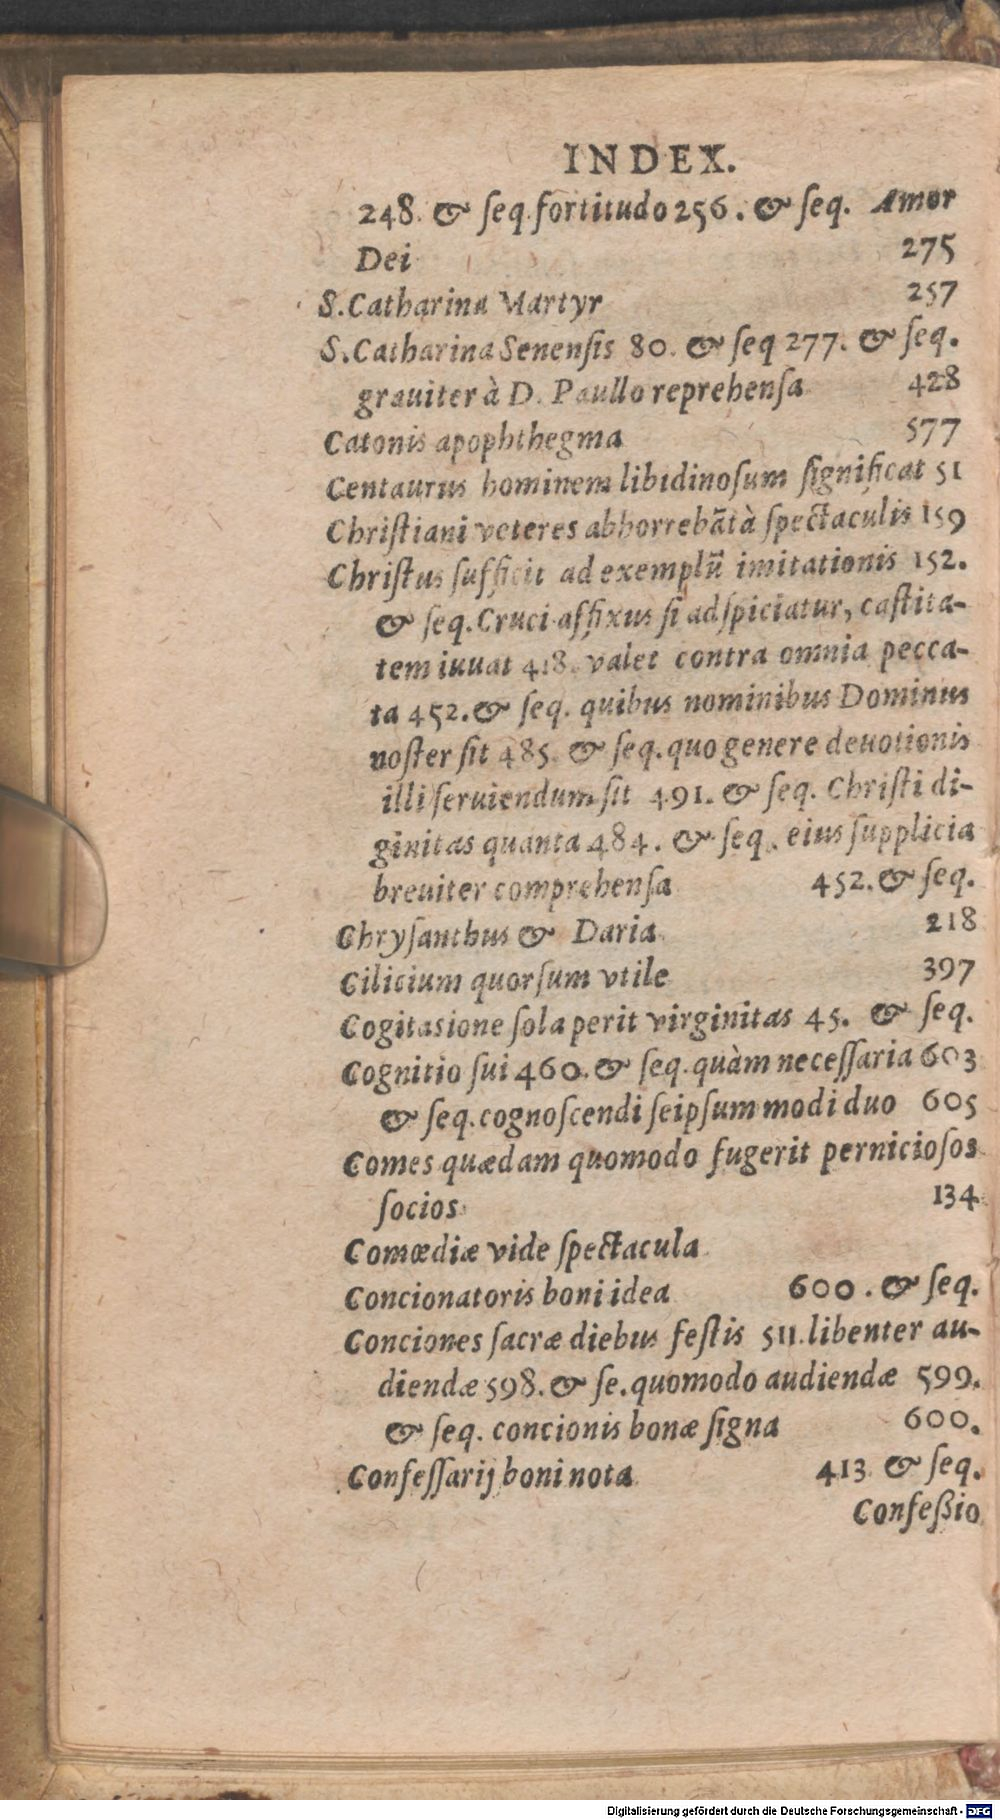 INDEX.
248. & ſeq. fortitudo 256. & ſeq. Amor
Dei 275
S. Catharina Martyr 257
S. Catharina Senenſis 80. & ſeq 277. & ſeq.
grauiter à D. Paullo reprehenſa 428
Catonis apophthegma 577
Centaurus hominem libidinoſum ſignificat 51
Chriſtiani veteres abhorrebãt à ſpectaculis 159
Chriſtus ſufficit ad exemplũ imitationis 152.
& ſeq. Cruci affixus ſi adſpiciatur, caſtita-
tem iuuat 418. valet contra omnia pecca-
ta 452. & ſeq. quibus nominibus Dominus
noſter ſit 485. & ſeq. quo genere deuotionis
illi ſeruiendum ſit 491. & ſeq. Chriſti di-
ginitas quanta 484. & ſeq. eius ſupplicia
breuiter comprehenſa 452. & ſeq.
Chryſanthus & Daria 218
Cilicium quorſum vtile 397
Cogitasione ſola perit virginitas 45. & ſeq.
Cognitio ſui 460. & ſeq. quàm neceſſaria 603
& ſeq. cognoſcendi ſeipſum modi duo 605
Comes quædam quomodo fugerit pernicioſos
ſocios 134
Comœdiæ vide ſpectacula
Concionatoris boni idea 600. & ſeq.
Conciones ſacræ diebus feſtis 511. libenter au-
diendæ 598. & ſe. quomodo audiendæ 599.
& ſeq. concionis bonæ ſigna 600.
Confeſſarij boni nota 413 & ſeq.
Confeßio
Digitalisierung gefördert durch die Deutsche Forschungsgemeinschaft - DFG